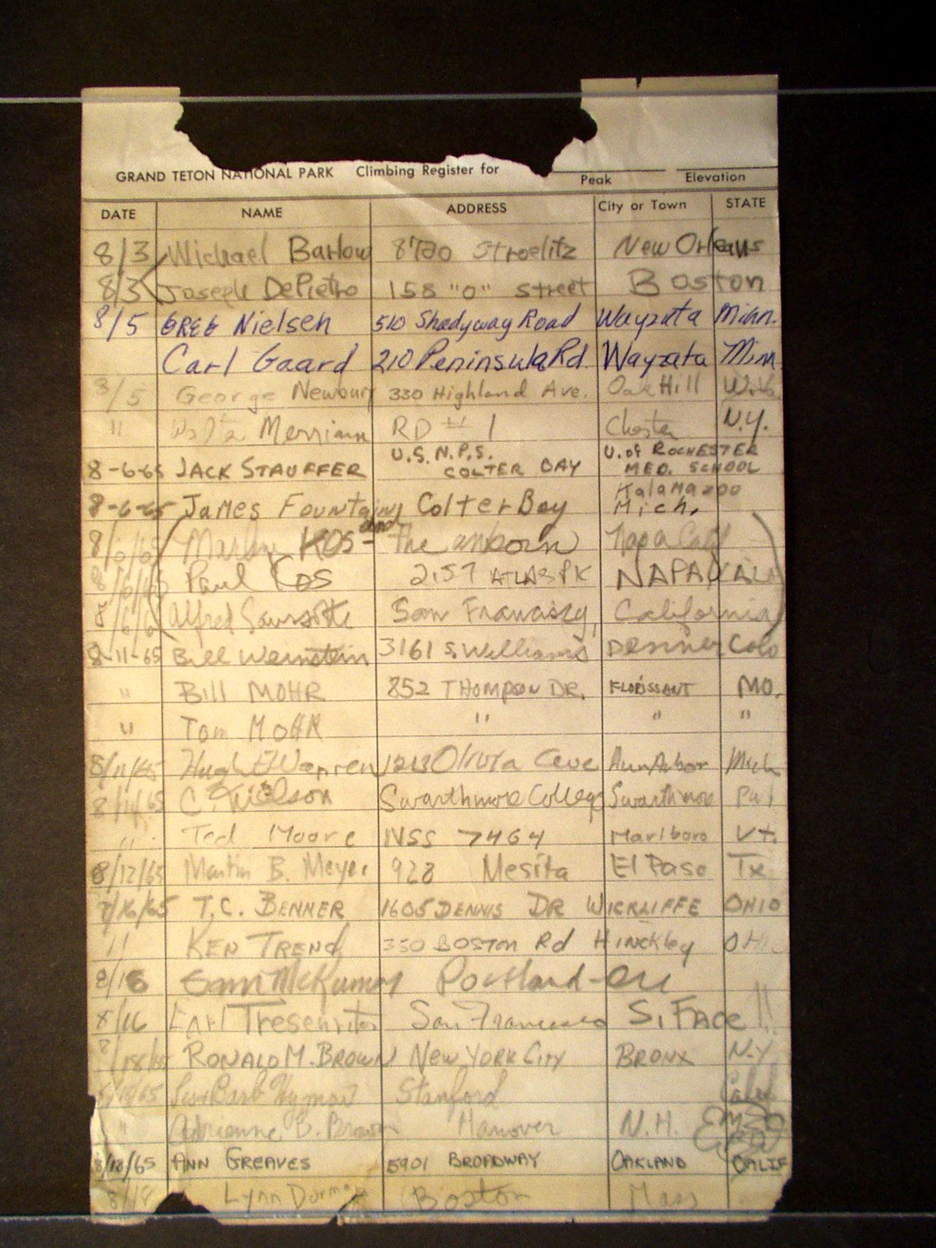 GRAND TETON NATIONAL PARK Climbing Register for
Peak Elevation
DATE NAME ADDRESS City or Town STATE
8/3 Michael Barlow 8720 Stroelitz New Orleans
8/3 Joseph DePietro 158 "O" street Boston
8/5 GREG Nielsen 510 Shadyway Road Wayzata Minn.
Carl Gaard 210 Peninsula Rd. Wayzata Minn
8/5 George Newbury 330 Highland Ave. Oak Hill
" Merriam RD # 1 Chester N.Y.
8-6-65 JACK STAUFFER U.S.N.P.S. COLTER BAY U. of ROCHESTER MED. SCHOOL
8-6-65 James Fountain Colter Bay Kalamazoo Mich.
8/6/65 KOS- and the unborn Napa Calif
8/6/65 Paul Kos 2157 ATLAS PK NAPA CALIF
8/6/6 Alfred San Francisco, California
8-11-65 Bill Weinstein 3161 S. Williams Denver Colo
" Bill MOHR 852 THOMPSON DR. FLORISSANT MO.
" Tom MOHR " " "
8/11/65 Hugh E Warren 1213 Olivia Ave Ann Arbor Mich
8/11/65 C Nielson Swarthmore College Swarthmore Pa
" Ted Moore NSS 7464 Marlboro Vt.
8/12/65 Martin B. Meyer 928 Mesita El Paso Tx
8/16/65 T.C. BENNER 1605 DENNIS DR WICKLIFFE OHIO
11 KEN TREND 350 BOSTON Rd Hinckley OHIO
8/16 Sam Portland-Ore
8/16 Earl San Francisco S. Face 11
8/18/65 RONALD M. BROWN NEW YORK CITY BRONX N.Y.
8/18/65 Stanford Calif
" Adrienne B. Brown Hanover N.H.
8/18/65 ANN GREAVES 5901 BROADWAY OAKLAND CALIF
8/18 Lynn Boston Mass